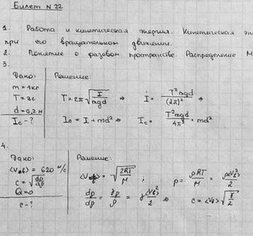 Билет N 22
1. Работа и кинетическая энергия. Кинетическая эн
при его вращательном движении.
2. Понятие о фазовом пространстве Распределение М
3.
Дано:
m = 1кг
T = 2с
d = 0,2 м
Ic - ?
Решение
T = 2π√(I/mgd) ⇒ I = T²mgd/(2π)² ⇒
Ic = I - md² ⇒ Ic = T²mgd/4π² - md²
4.
Дано:
= 620 м/с
c = √(dp/dρ)
Q = 0
c - ?
Решение:
= √(2RT/M) ; p = ρRT/M =
dp/dρ = ⇒ c =